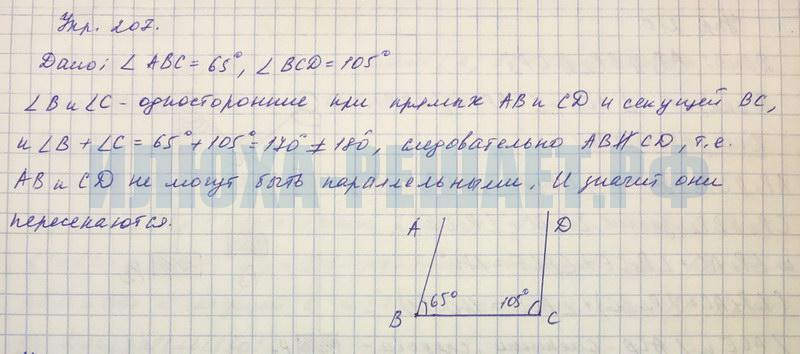 Упр. 207.
Дано: ∠ABC = 65°, ∠BCD = 105°
∠B и ∠C - односторонние при прямых AB и CD и секущей BC,
и ∠B + ∠C = 65° + 105° = 170° ≠ 180°, следовательно AB ∦ CD, т.е.
AB и CD не могут быть параллельными. И значит они
пересекаются.
A D
65° 105°
B C
ИЛЮХАРЕШАЕТ.РФ